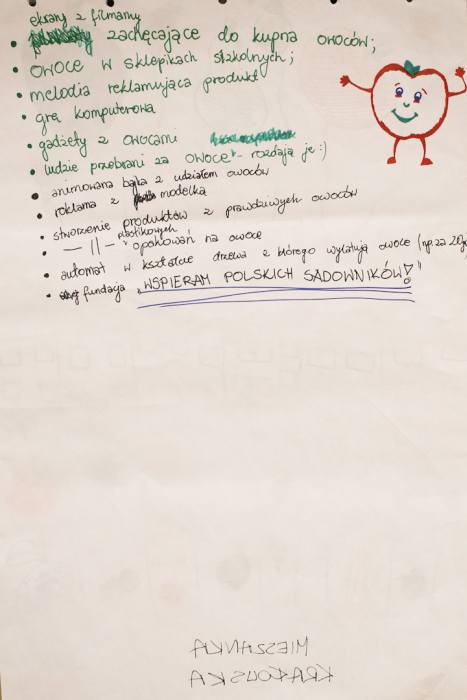 ekrany z filmamy
• zachęcające do kupna owoców;
• owoce w sklepikach szkolnych;
• melodia reklamująca produkt
• grę komputerowa
• gadżety z owocami
• ludzie przebrani za owoce - rozdają je :)
• animowana bajka z udziałem owoców
• reklama z modelką
• stworzenie produktów z prawdziwych owoców
• — || — plastikowych opakowań na owoce
• automat w kształcie drzewa z którego wylatują owoce (np. za 20gr
• fundacja „WSPIERAM POLSKICH SADOWNIKÓW!"
MIESZANKA
KRAKOWSKA